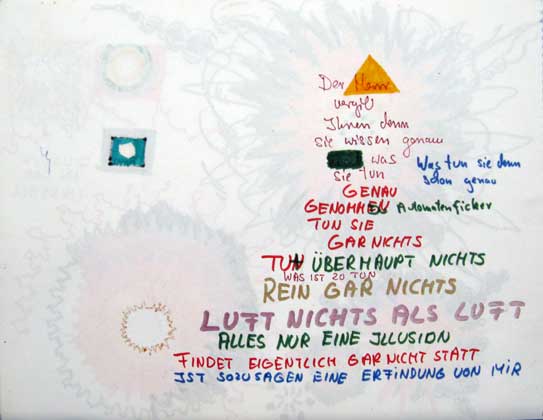 Der Herr
vergib
Ihnen denn
sie wissen genau
was
sie tun
Was tun sie denn
schon genau
GENAU
GENOMMEN Automatenficker
TUN SIE
GAR NICHTS
TUN ÜBERHAUPT NICHTS
WAS IST ZO TUN
REIN GAR NICHTS
LUFT NICHTS ALS LUFT
ALLES NUR EINE ILLUSION
FINDET EIGENTLICH GAR NICHT STATT
IST SOZUSAGEN EINE ERFINDUNG VON MIR